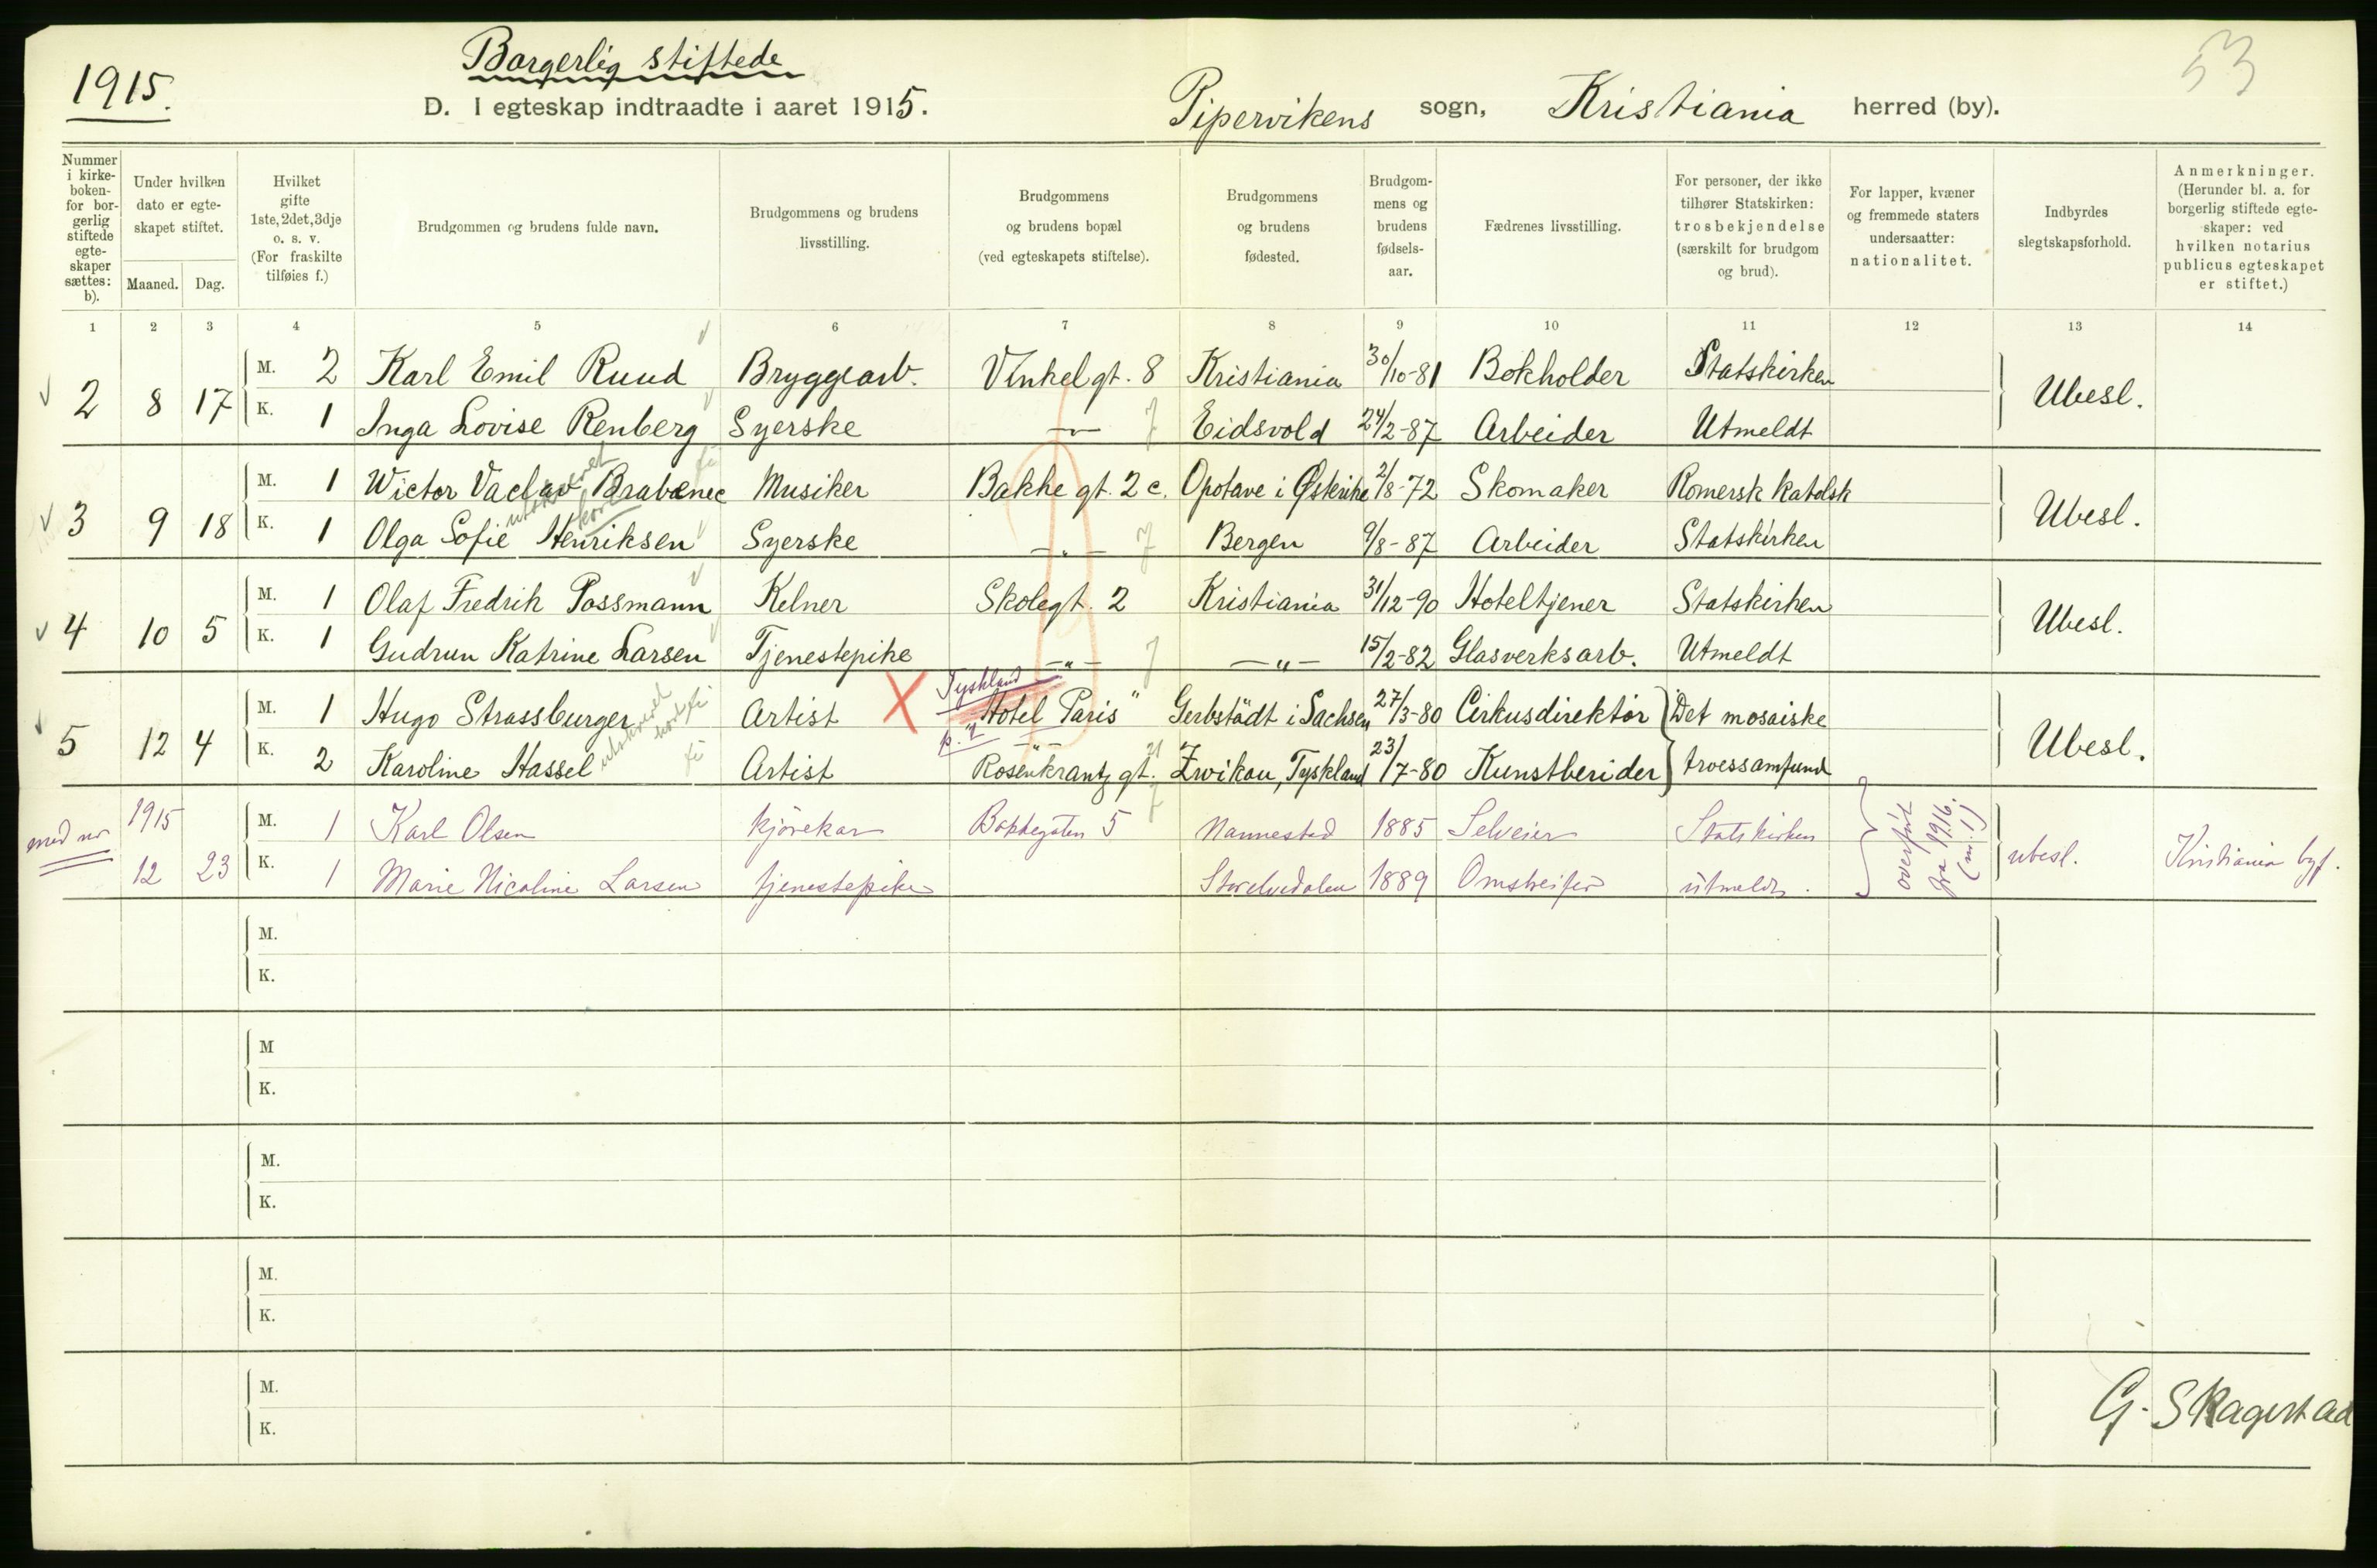 1915.
Borgerlig stiftede
D. I egteskap indtraadte i aaret 1915.
Pipervikens sogn, Kristiania herred (by).
53
Nummer i kirkeboken- for borgerlig stiftede egteskaper sættes: b).
Under hvilken dato er egteskapet stiftet.
Maaned. Dag.
Hvilket gifte 1ste, 2det, 3dje o. s. v. (For fraskilte tilføies f.)
Brudgommen og brudens fulde navn.
Brudgommens og brudens livsstilling.
Brudgommens og brudens bopæl (ved egteskapets stiftelse).
Brudgommens og brudens fødested.
Brudgommens og brudens fødselsaar.
Fædrenes livsstilling.
For personer, der ikke tilhører Statskirken: trosbekjendelse (særskilt for brudgom og brud).
For lapper, kvæner og fremmede staters undersaatter: nationalitet.
Indbyrdes slegtskapsforhold.
Anmerkninger. (Herunder bl. a. for borgerlig stiftede egteskaper: ved hvilken notarius publicus egteskapet er stiftet.)
1 2 3 4 5 6 7 8 9 10 11 12 13 14
2 8 17 M. 2 Karl Emil Ruud Bryggearb. Vinkelgt. 8 Kristiania 30/10-81 Bokholder Statskirken Ubesl.
K. 1 Inga Lovise Renberg Syerske —"— Eidsvold 24/2-87 Arbeider Utmeldt
3 9 18 M. 1 Wictor Vaclav Brabenec Musiker Bakke gt. 2 c. Opotave i Østerike 2/8-72 Skomaker Romersk katolsk Ubesl.
utskrevet kort
K. 1 Olga Sofie Henriksen Syerske —"— Bergen 9/8-87 Arbeider Statskirken
4 10 5 M. 1 Olaf Fredrik Possmann Kelner Skolegt. 2 Kristiania 31/12-90 Hoteltjener Statskirken Ubesl.
K. 1 Gudrun Katrine Larsen Tjenestepike —"— —"— 15/2-82 Glasverksarb. Utmeldt
Tyskland
5 12 4 M. 1 Hugo Strassburger Artist X "Hotel Paris" Gerbstädt i Sachsen 27/3-80 Cirkusdirektør Det mosaiske Ubesl.
utskrevet kort
K. 2 Karoline Hassel Artist Rosenkrantz gt. Zwikau, Tyskland 23/7-80 Kunstberider troessamfund
med nr 1915 12 23 M. 1 Karl Olsen kjørekar Bakkegaten 5 Nannestad 1885 Selveier Statskirken overført fra 1916. (nr. 1) ubesl. Kristiania byf.
K. 1 Marie Nicoline Larsen tjenestepike Storelvedalen 1889 Omstreifer utmeldt.
M.
K.
M
K.
M.
K.
M.
K.
M.
K.
G. Skagestad